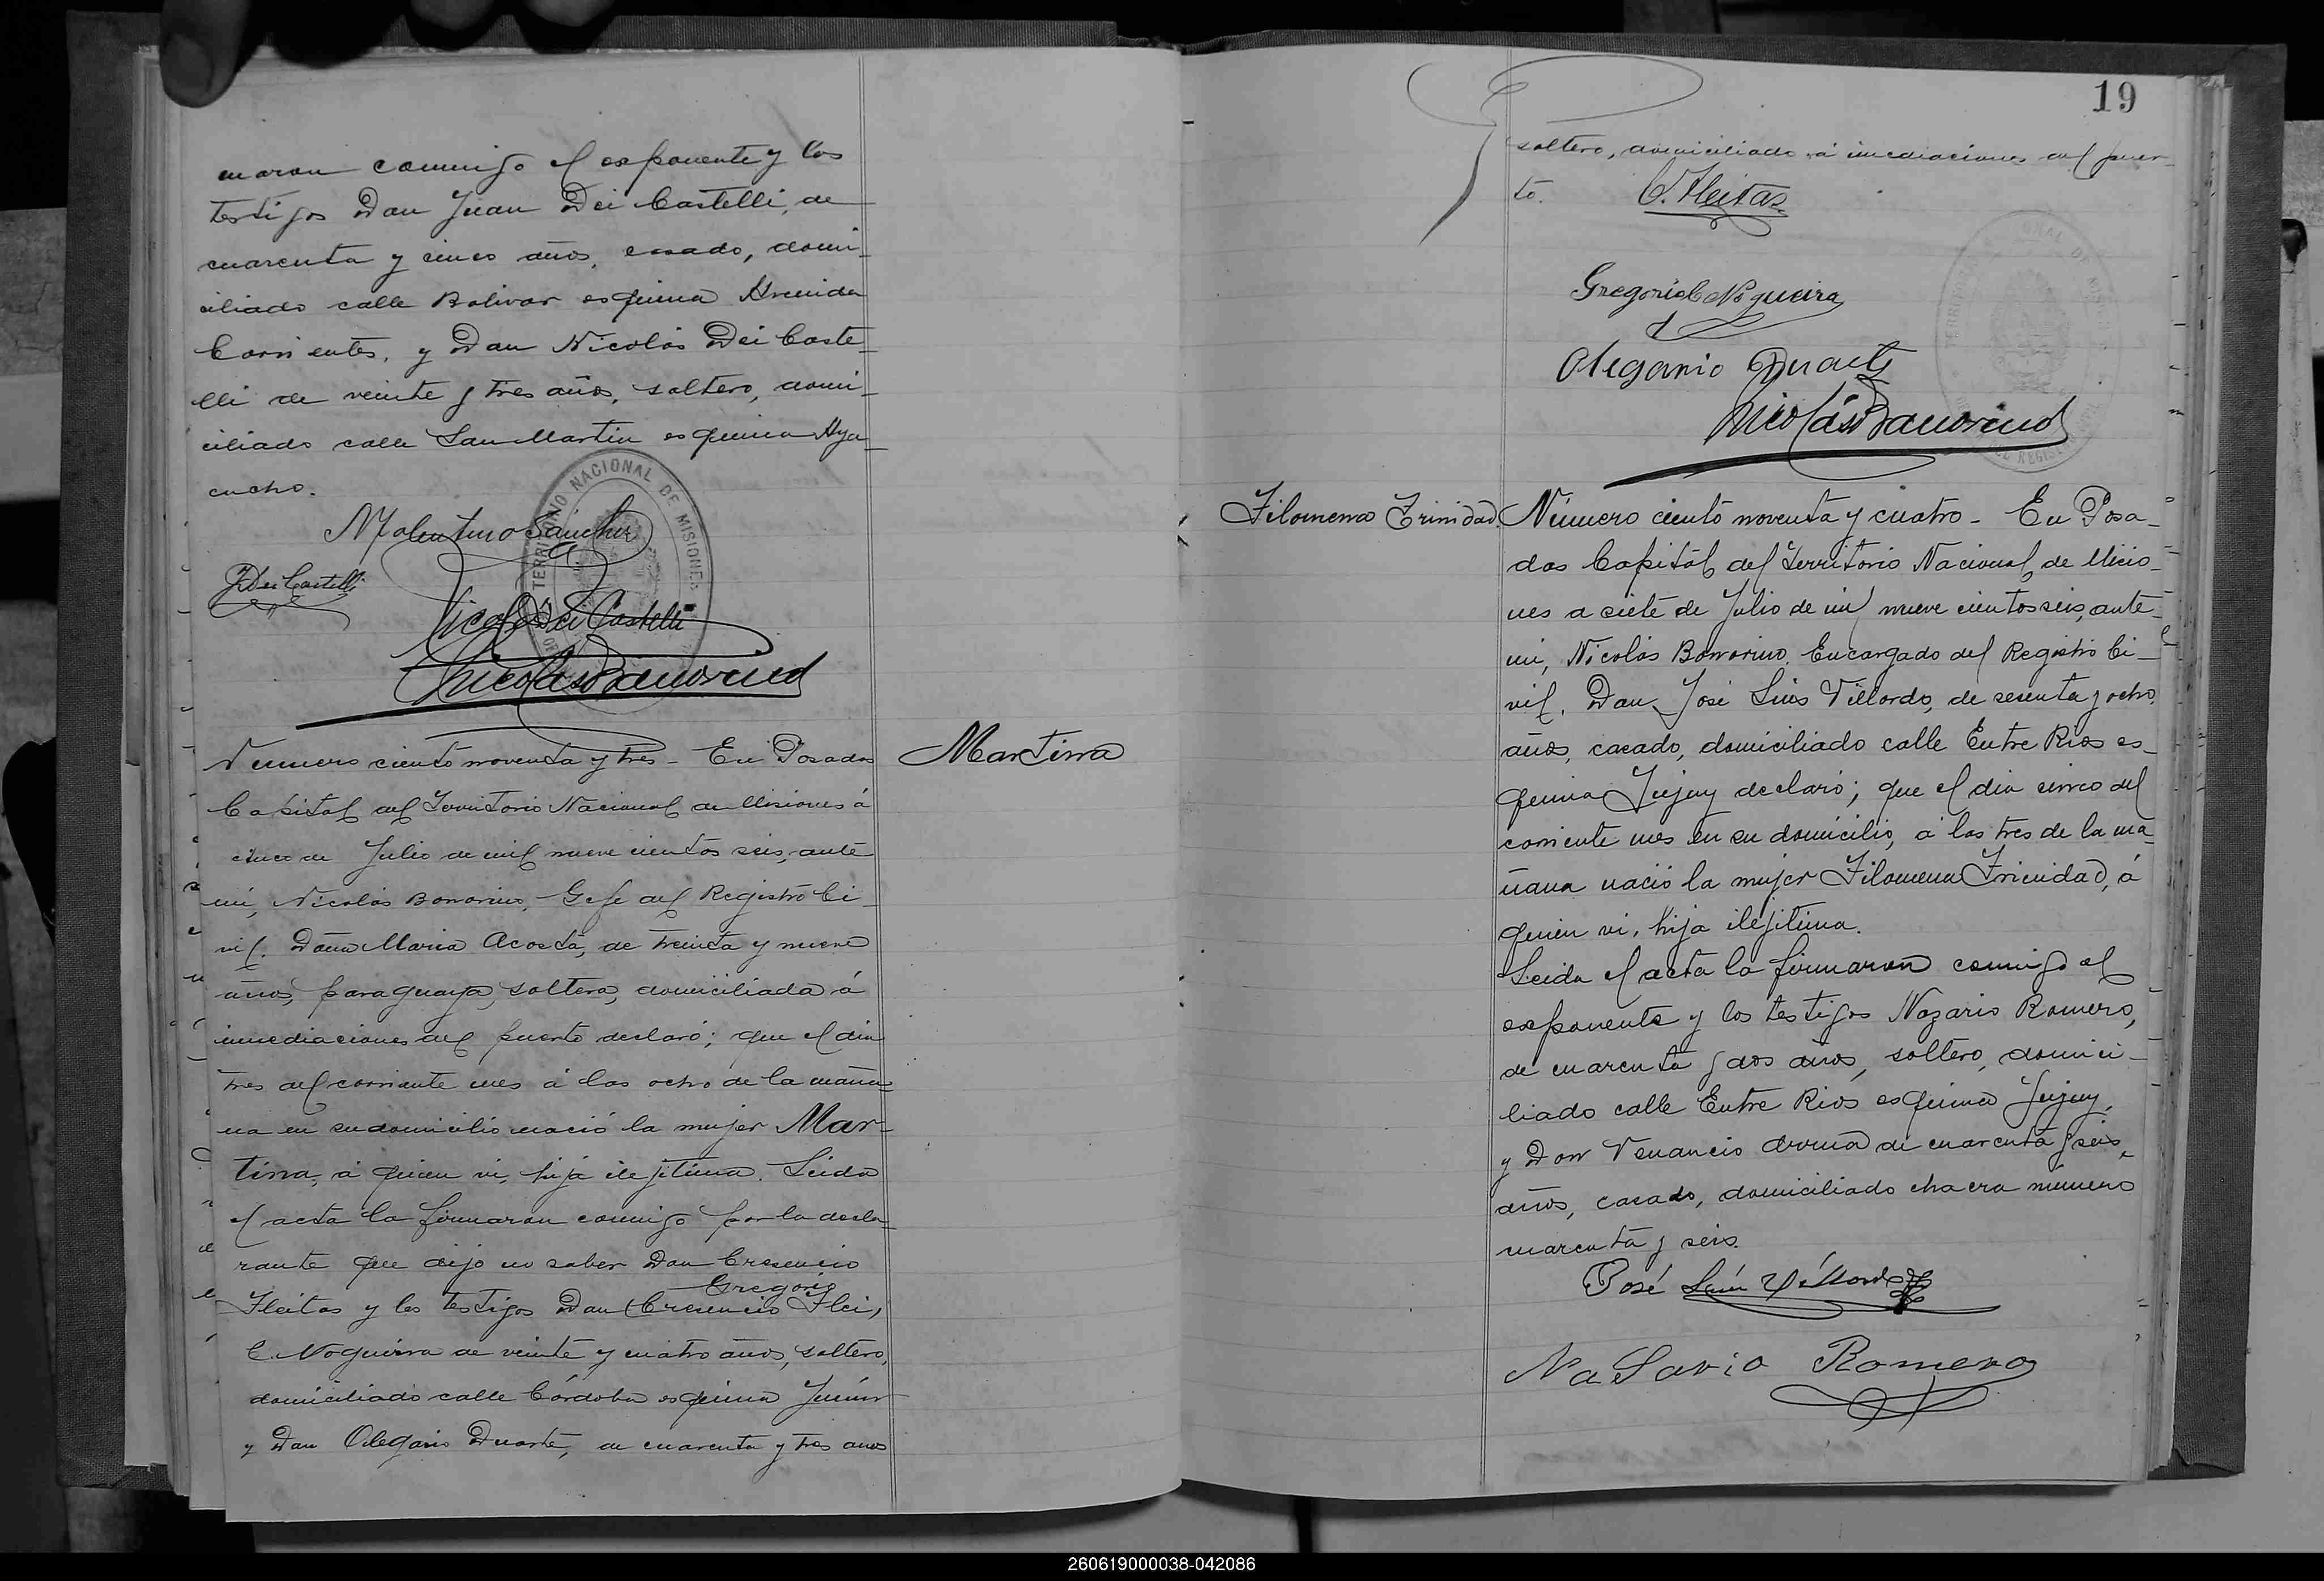 maron conmigo el exponente y los
testigos Don Juan Dei Castelli, de
cuarenta y cinco años, casado, domi-
ciliado calle Bolivar esquina Avenida
Corrientes, y Don Nicolás Dei Caste-
lli de veinte y tres años, soltero, domi-
ciliado calle San Martin esquina Aya-
cucho.
Sanchez
J Dei Castelli
TERRITORIO NACIONAL DE MISIONES
Nicolas Dei Castelli
Nicolás Bonorino
Martina
Numero ciento noventa y tres - En Posadas
Capital del Territorio Nacional de Misiones á
cinco de Julio de mil nueve cientos seis, ante
mi, Nicolás Bonorino, - Gefe del Registro Ci-
vil. Doña Maria Acosta, de treinta y nueve
años, paraguaya, soltera, domiciliada á
inmediaciones del puerto declaró; que el dia
tres del corriente mes á las ocho de la maña
na en su domicilio nació la mujer Mar-
tina, á quien vi, hija ilejitima. Leida
el acta la firmaron conmigo por la decla-
rante que dijo no saber Don Cresencio
Gregorio
Fleitas y los testigos Don (Cresencio Flei,
C. Nogueira de veinte y cuatro años, soltero,
domiciliado calle Córdoba esquina Junin
y Don Olegario Duarte, de cuarenta y tres años
19
soltero, domiciliado á inmediaciones del puer-
to.
C. Fleitas
Gregorio C Nogueira
Olegario Duarte
Nicolás Bonorino
Filomena Trinidad.
Número ciento noventa y cuatro - En Posa-
das Capital del Territorio Nacional de Misio-
nes a siete de Julio de mil nueve cientos seis, ante
mi, Nicolás Bonorino, Encargado del Registro Ci-
vil. Don José Luis Villordo, de sesenta y ocho
años, casado, domiciliado calle Entre Rios es-
quina Jujuy declaró; que el dia cinco del
corriente mes en su domicilio, á las tres de la ma-
ñana nació la mujer Filomena Trinidad, á
quien vi, hija ilejitima.
Leida el acta la firmaron conmigo el
exponente y los testigos Nazario Romero,
de cuarenta y dos años, soltero, domici-
liado calle Entre Rios esquina Jujuy,
y Don Venancio de cuarenta y seis,
años, casado, domiciliado chacra número
cuarenta y seis.
José Luis Villordo
NaSario Romero
260619000038-042086